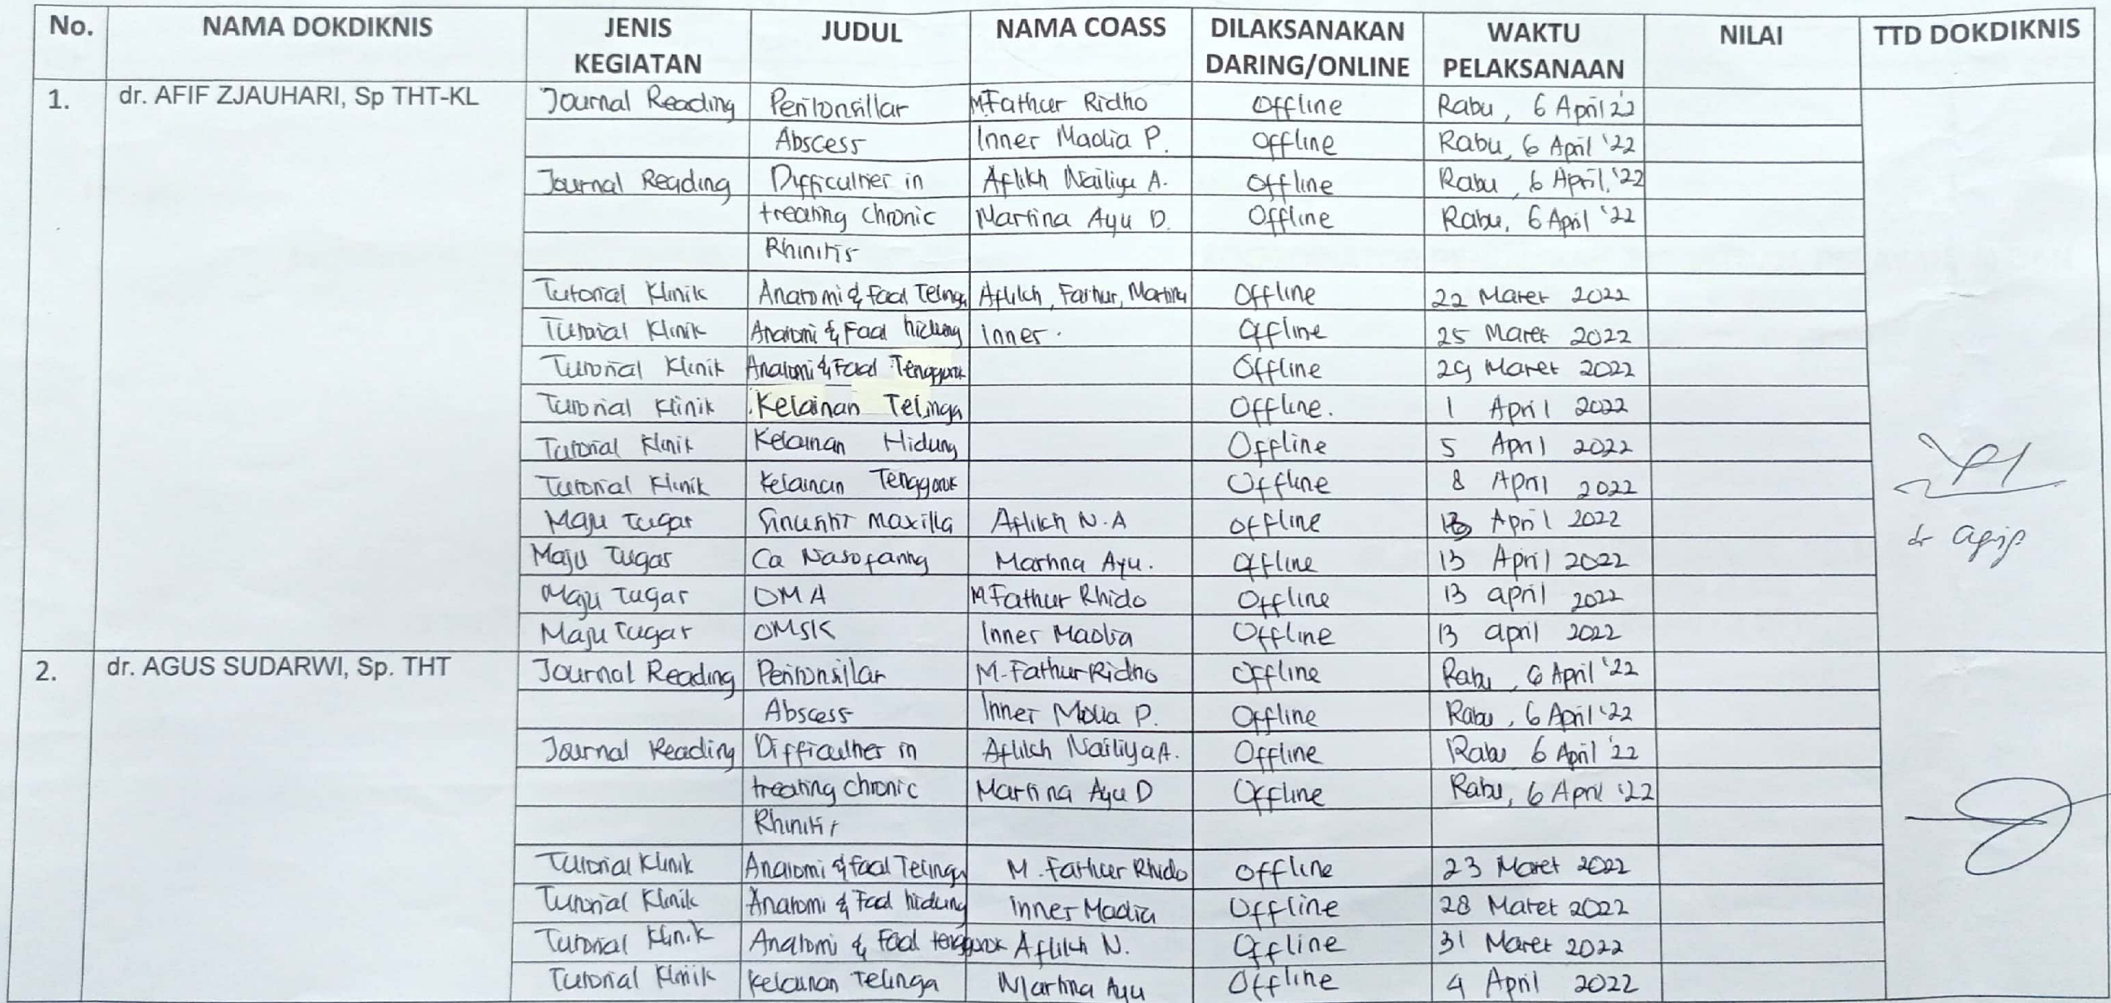 No. NAMA DOKDIKNIS JENIS KEGIATAN JUDUL NAMA COASS DILAKSANAKAN DARING/ONLINE WAKTU PELAKSANAAN NILAI TTD DOKDIKNIS
1. dr. AFIF ZJAUHARI, Sp THT-KL Journal Reading Peritonsillar M.Fathur Ridho Offline Rabu, 6 April 22
Abscess Inner Maolia P. Offline Rabu, 6 April '22
Journal Reading Difficulties in Aflikh Nailiya A. Offline Rabu, 6 April, '22
treating chronic Martina Ayu D. Offline Rabu, 6 April '22
Rhinitis
Tutorial Klinik Anatomi & Faal Telinga Aflikh, Fathur, Martina Offline 22 Maret 2022
Tutorial Klinik Anatomi & Faal hidung Inner. Offline 25 Maret 2022
Tutorial Klinik Anatomi & Faal Tenggorok Offline 29 Maret 2022
Tutorial Klinik Kelainan Telinga Offline. 1 April 2022
Tutorial Klinik Kelainan Hidung Offline 5 April 2022
Tutorial Klinik Kelainan Tenggorok Offline 8 April 2022
Maju Tugas Sinusitis Maxilla Aflikh N.A Offline 13 April 2022
Maju Tugas Ca Nasofaring Martina Ayu. Offline 13 April 2022
Maju Tugas OMA M Fathur Rhido Offline 13 april 2022
Maju Tugas OMSK Inner Maolia Offline 13 april 2022
dr afip
2. dr. AGUS SUDARWI, Sp. THT Journal Reading Peritonsillar M. Fathur Ridho Offline Rabu, 6 April '22
Abscess Inner Molia P. Offline Rabu, 6 April '22
Journal Reading Difficulties in Aflikh Nailiya A. Offline Rabu, 6 April '22
treating chronic Martina Ayu D Offline Rabu, 6 April '22
Rhinitis
Tutorial Klinik Anatomi & faal Telinga M. Fathur Rhido Offline 23 Maret 2022
Tutorial Klinik Anatomi & Faal hidung inner Maolia Offline 28 Maret 2022
Tutorial Klinik Anatomi & Faal tenggorok Aflikh N. Offline 31 Maret 2022
Tutorial Klinik Kelainan Telinga Martina Ayu Offline 4 April 2022